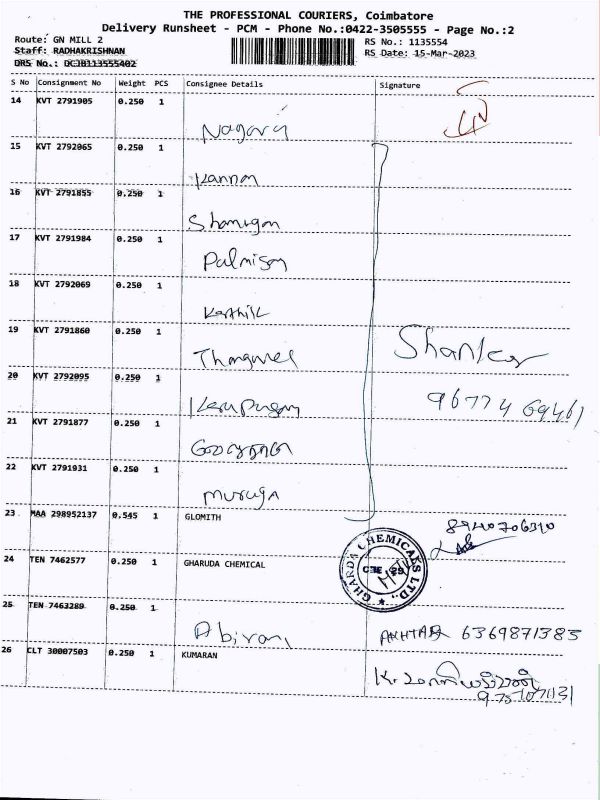 THE PROFESSIONAL COURIERS, Coimbatore
Delivery Runsheet - PCM - Phone No.:0422-3505555 - Page No.:2
Route: GN MILL 2
RS No.: 1135554
Staff: RADHAKRISHNAN
RS Date: 15-Mar-2023
DRS No.: DCJB113555402
S No Consignment No Weight PCS Consignee Details Signature
14 KVT 2791905 0.250 1
Nagaraj
15 KVT 2792065 0.250 1
Kannan
16 KVT 2791855 0.250 1
Shanmugam
17 KVT 2791984 0.250 1
Palnisamy
18 KVT 2792069 0.250 1
Karthik
19 KVT 2791860 0.250 1
Thangavel Shankar
20 KVT 2792095 0.250 1
9677469461
21 KVT 2791877 0.250 1
22 KVT 2791931 0.250 1
Muruga
23 MAA 298952137 0.545 1 GLOMITH
8940706310
24 TEN 7462577 0.250 1 GHARUDA CHEMICAL
GHARDA CHEMICALS LTD.,
25 TEN 7463289 0.250 1
Abirami AKHTAR 6369871383
26 CLT 30007503 0.250 1 KUMARAN